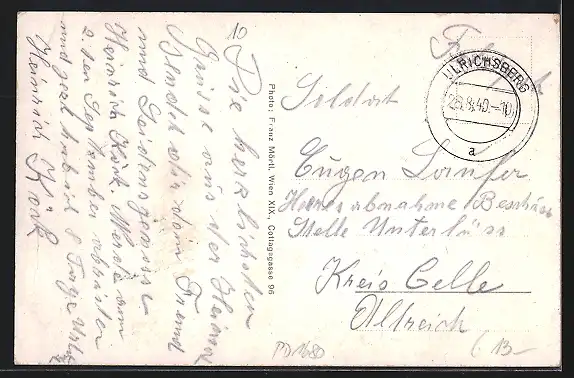 10
Die herzlichsten
Grüsse aus der Heimat
sendet dir dein Freund
und
Heinrich Körk. Werde am
2 ten September
und jetzt habe ich 8 Tage Urlaub
Heinrich Körk
Photo: Franz Mörtl, Wien XIX., Cottagegasse 96
ULRICHSBERG
25.8.40.-10
a
Soldat
Eugen Laufer
Heeresabnahme Beschuss
Stelle Unterlüss
Kreis Celle
Altreich
PD1680
(13-